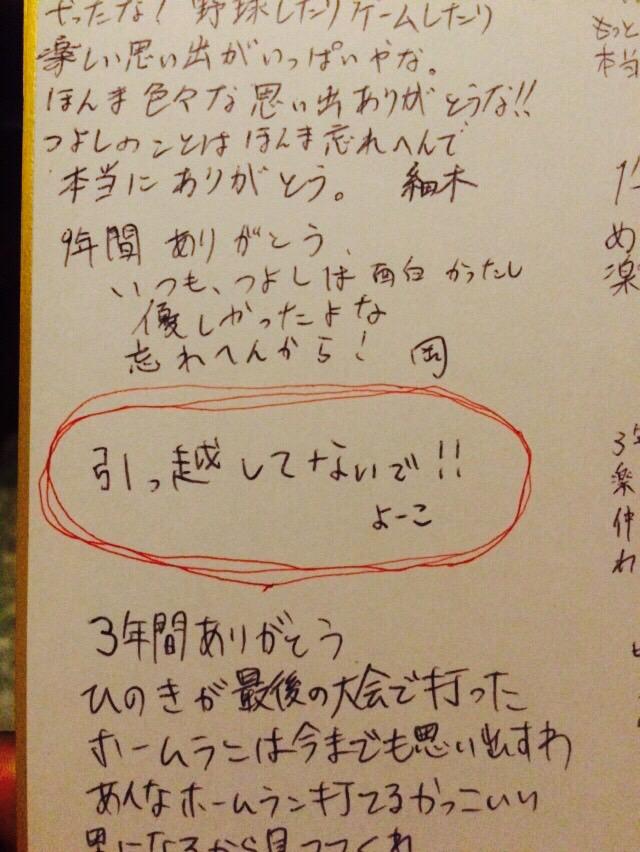 やったな！野球したりゲームしたり
楽しい思い出がいっぱいやな。
ほんま色々な思い出ありがとうな!!
つよしのことはほんま忘れへんで
本当にありがとう。 細木
9年間ありがとう、
いつも、つよしは面白かったし
優しかったよな
忘れへんから！ 岡
引っ越してないで!!
よーこ
3年間ありがとう
ひのきが最後の大会で打った
ホームランは今までも思い出すわ
あんなホームラン打てるかっこいい
男になるから見ててくれ
もっと
本当
め
楽
3年
楽
仲
れ